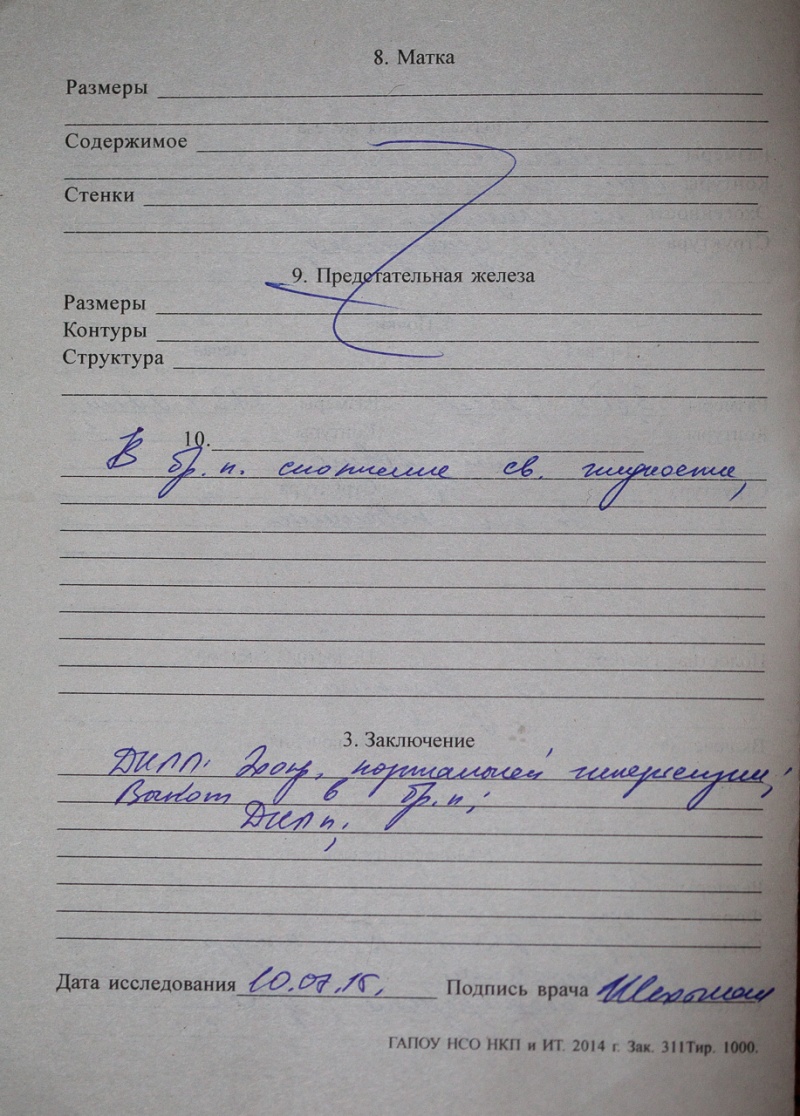 8. Матка
Размеры
Содержимое
Стенки
9. Предстательная железа
Размеры
Контуры
Структура
10.
В бр. п. скопление св. жидкости,
3. Заключение
Эхопр. портальной гипертензии,
в бр. п;
Дата исследования 10.07.15,
Подпись врача
ГАПОУ НСО НКП и ИТ. 2014 г. Зак. 311Тир. 1000.